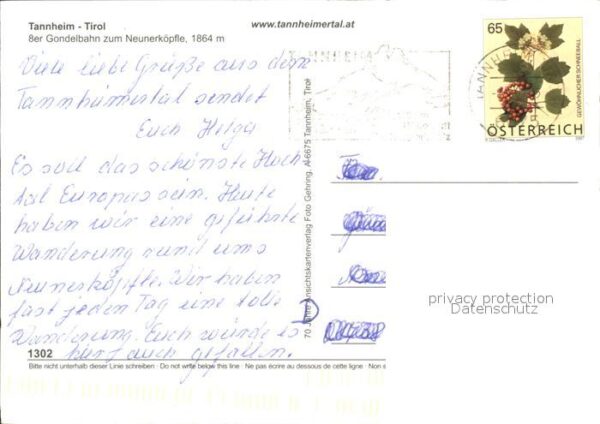 Tannheim - Tirol
8er Gondelbahn zum Neunerköpfle, 1864 m
www.tannheimertal.at
Viele liebe Grüße aus dem
Tannheimertal sendet
Euch Helga
Es soll das schönste Hoch
tal Europas sein. Heute
haben wir eine geführte
Wanderung rund ums
Neunerköpfle. Wir haben
fast jeden Tag eine tolle
Wanderung. Euch würde es
hier auch gefallen.
1302
Bitte nicht unterhalb dieser Linie schreiben · Do not write below this line · Ne pas écrire au dessous de cette ligne · Non s
70 Jahre Ansichtskartenverlag Foto Gehring, A-6675 Tannheim, Tirol
TANNHEIM
TANNHE
65
GEWÖHNLICHER SCHNEEBALL
ÖSTERREICH
2007
privacy protection
Datenschutz